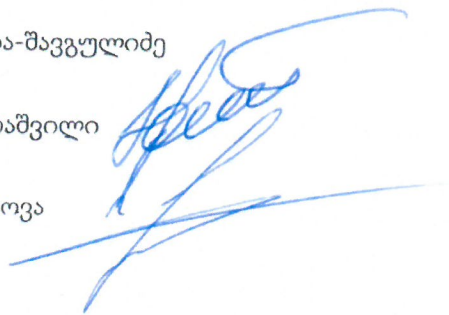 ა-შავგულიძე
აშვილი
ოვა